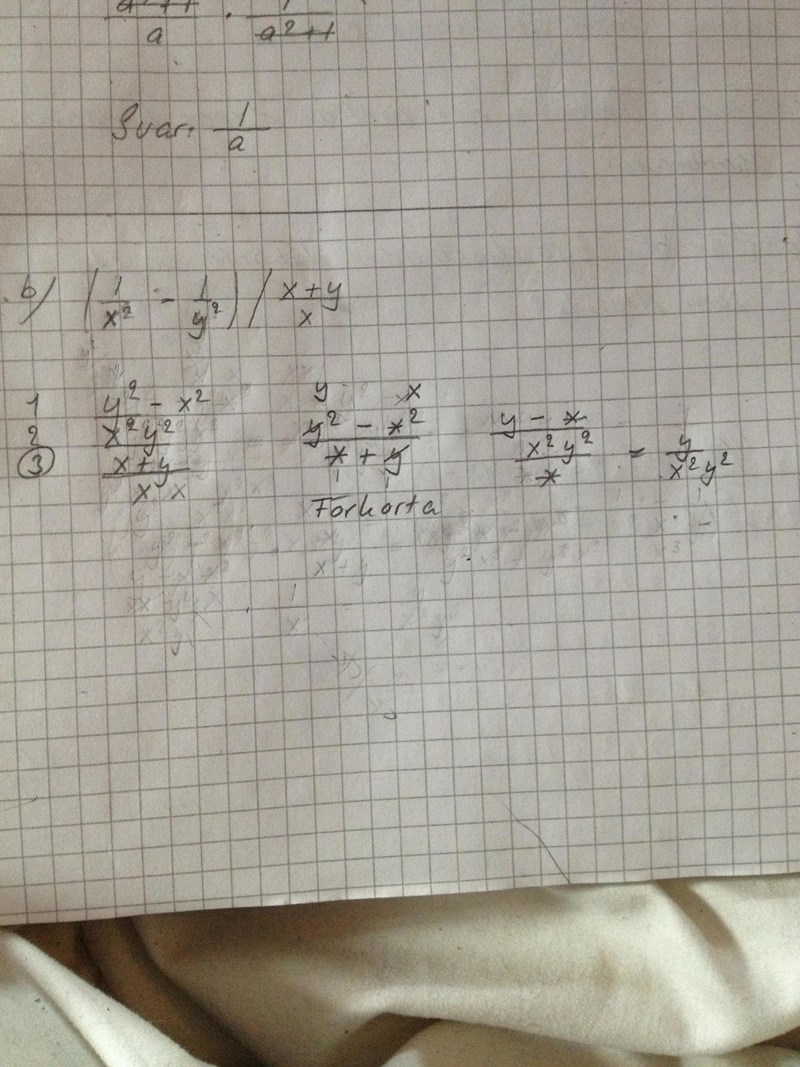 a²+1 / a · 1 / a²+1
Svar: 1/a
b) (1/x² - 1/y²) / x+y/x
1 y² - x²
2 x²y²
③ x+y
x x
y x
y² - x²
x + y
Förkorta
y - x
x²y²
x
= y / x²y²